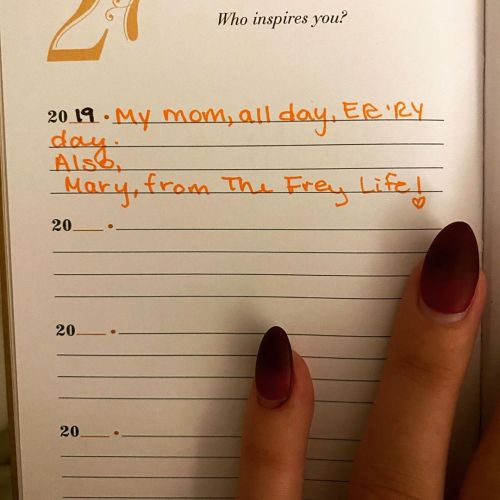 27
Who inspires you?
2019 • My mom, all day, ER'RY
day.
Also,
Mary, from The Frey Life!
20__ •
20__ •
20__ •